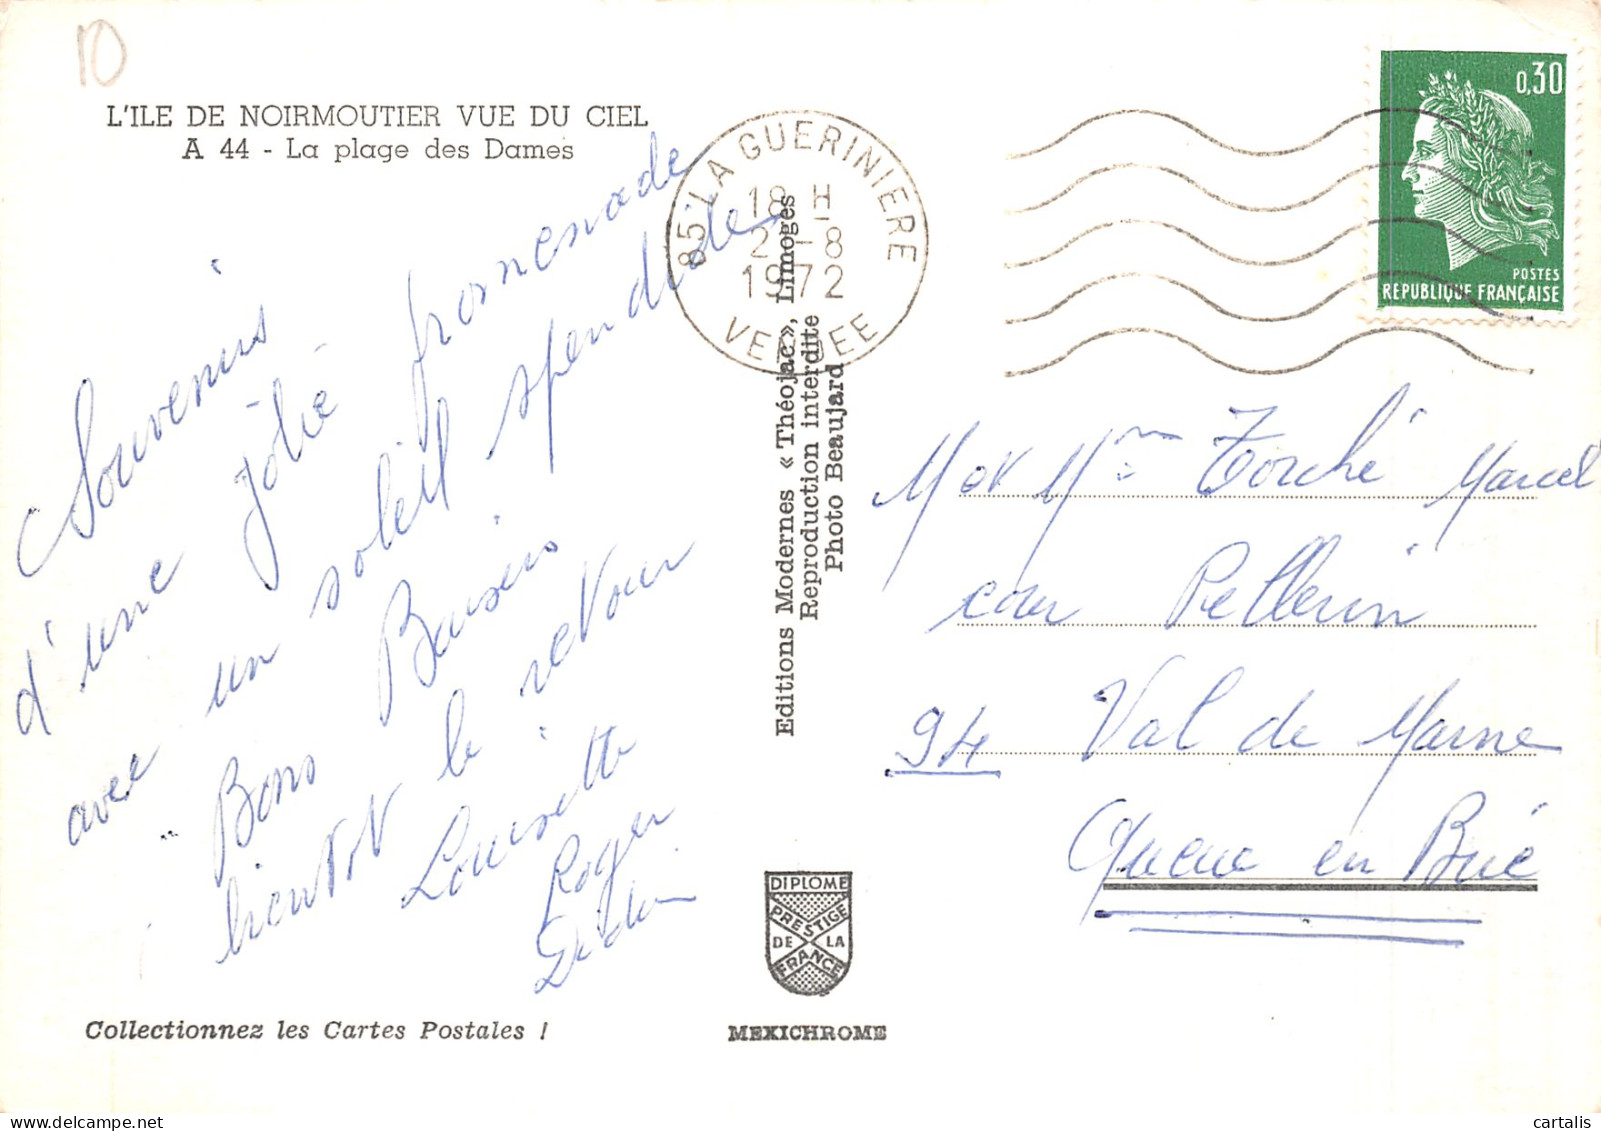 10
L'ILE DE NOIRMOUTIER VUE DU CIEL
A 44 - La plage des Dames
Souvenirs
d'une jolie promenade
avec un soleil splendide
Bons Baisers
bientôt le retour
Louisette
Roger
Collectionnez les Cartes Postales !
Editions Modernes « Théojac », Limoges
Reproduction interdite
Photo Beaujard
DIPLOME
PRESTIGE
DE LA
FRANCE
MEXICHROME
85 LA GUERINIERE
18 H
2 -8
1972
VENDEE
0,30
POSTES
REPUBLIQUE FRANÇAISE
M et Mme Torché Marcel
cour Pellerin
94 Val de Marne
Queue en Brie
cartalis
delcampe.net